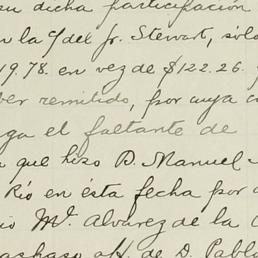 su dicha participación
en la c/ del Jr. Stewart, sólo
19.78. en vez de $122.26.
ber remitido, por cuya
ga el faltante de
que hizo D. Manuel
Rio en ésta fecha por
io Ml. Alvarez de la
de D. Pablo